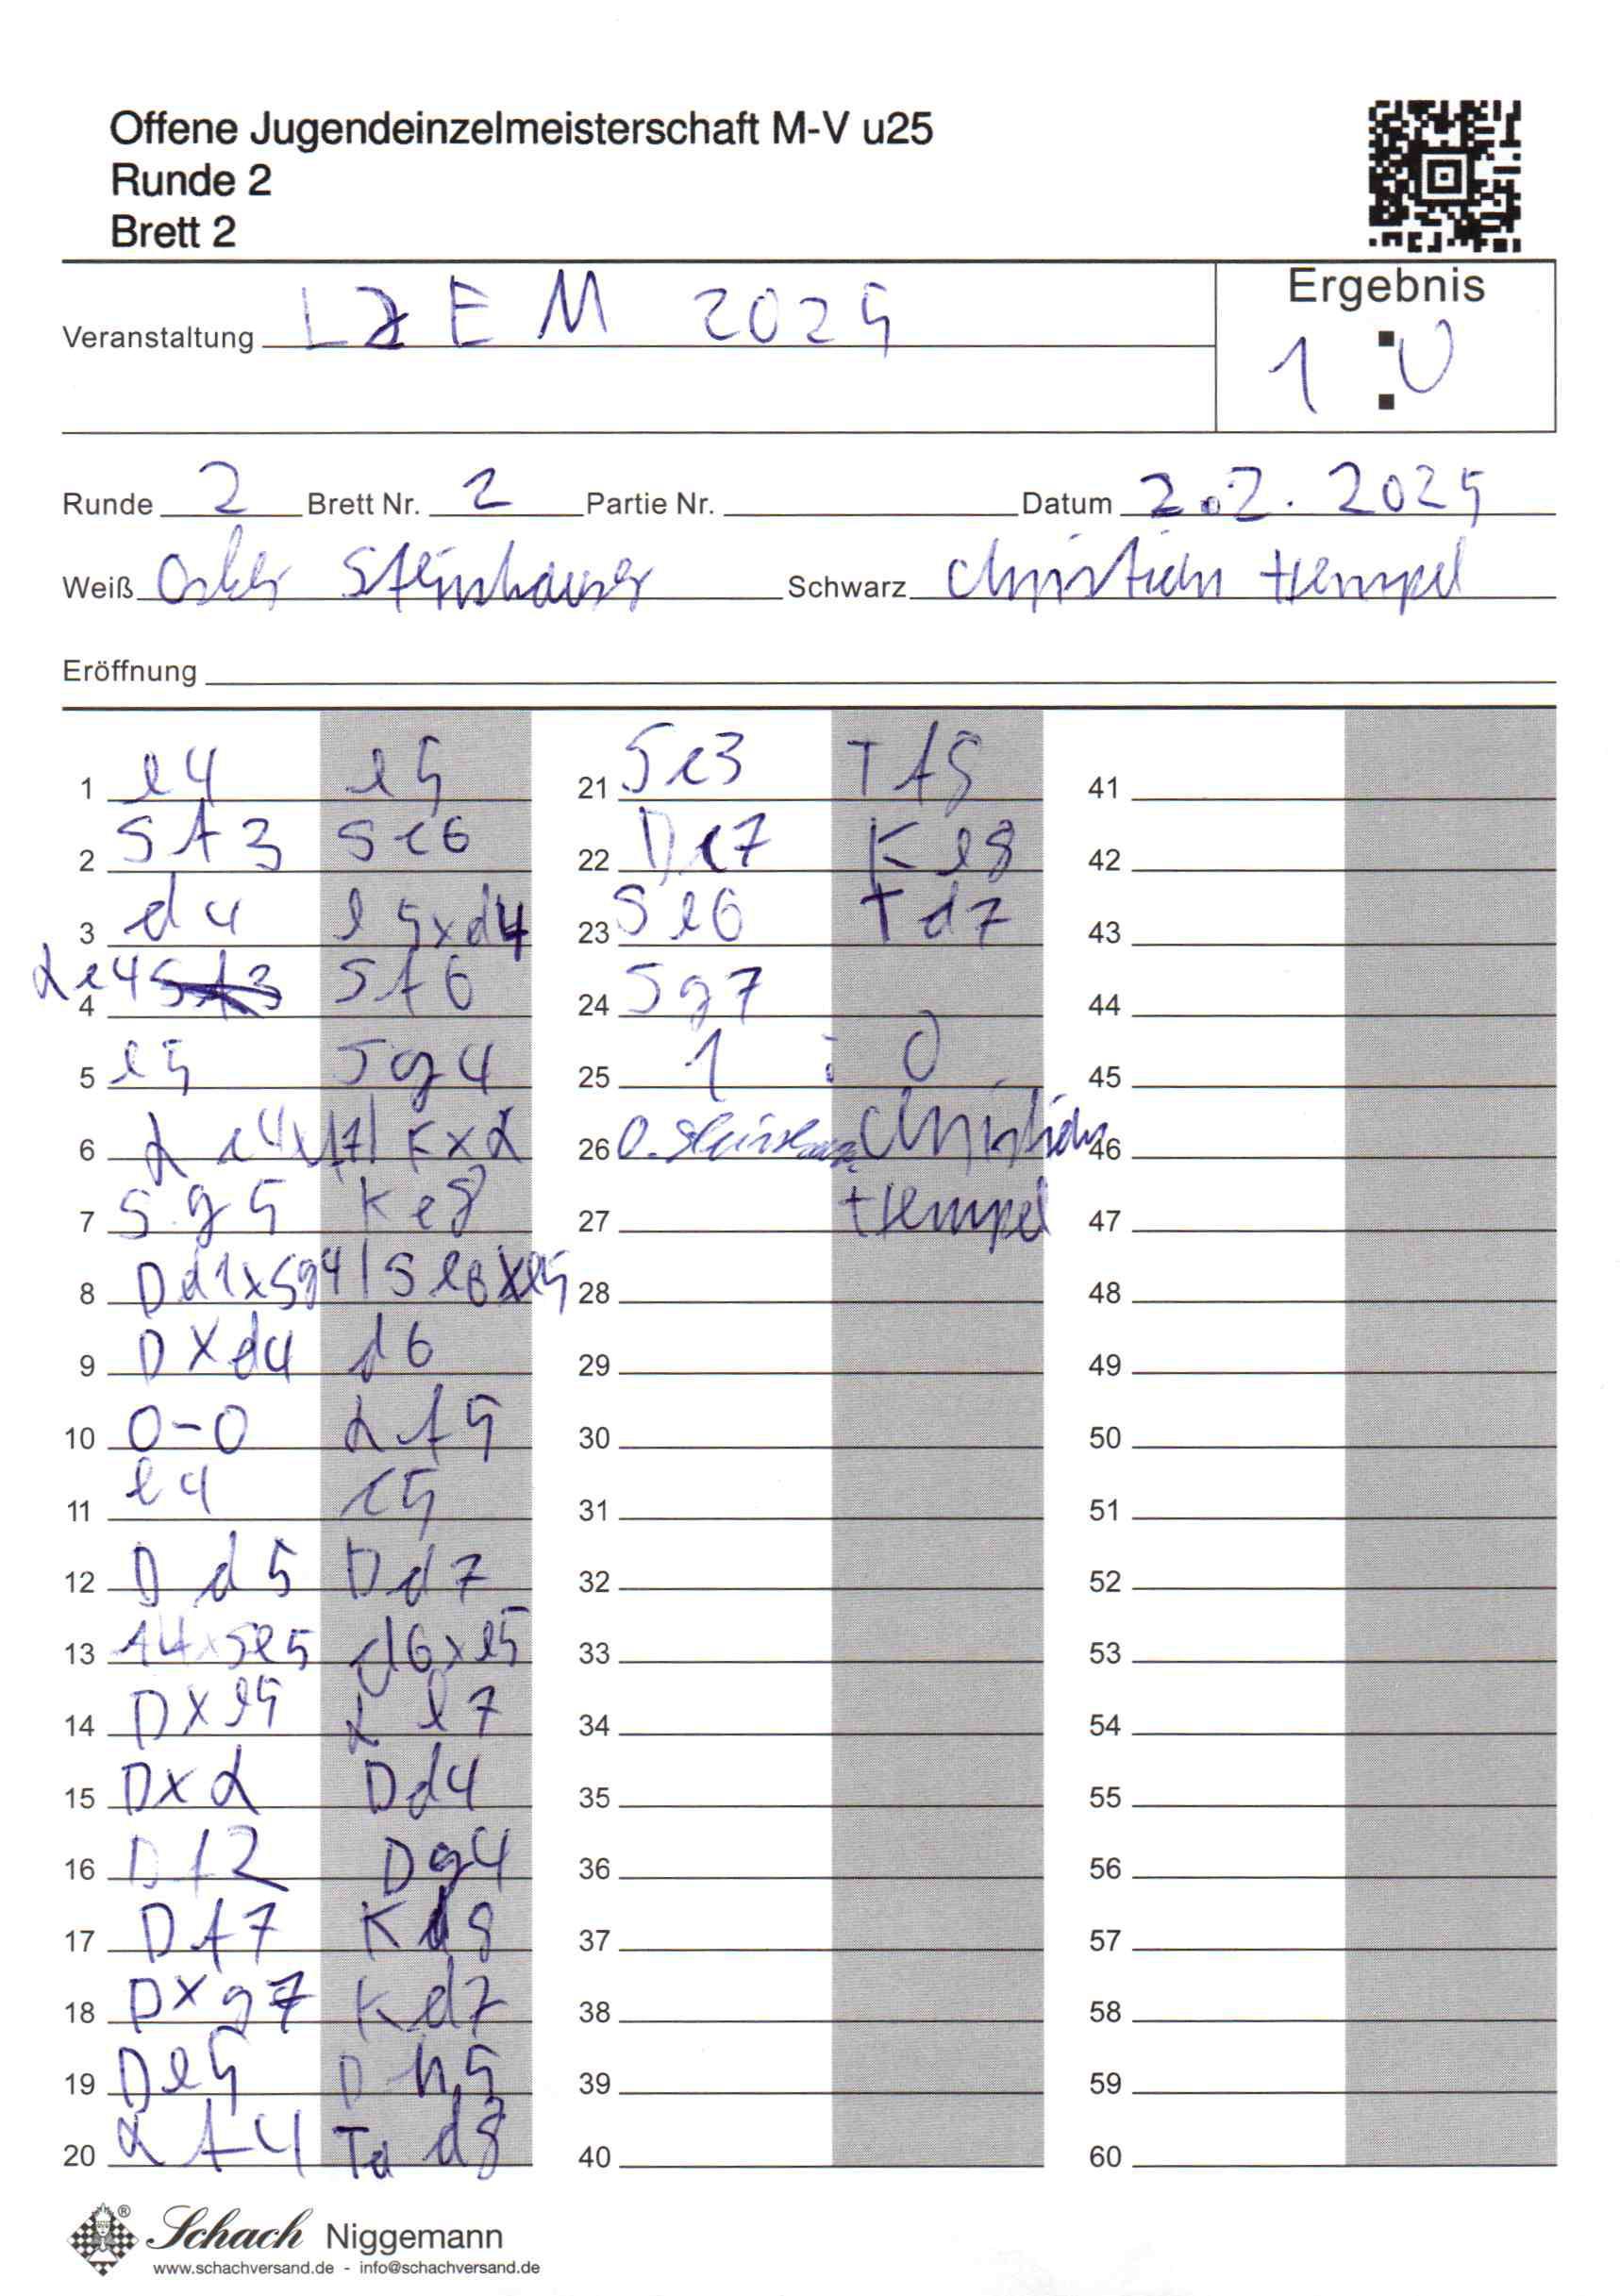 Offene Jugendeinzelmeisterschaft M-V u25
Runde 2
Brett 2
Veranstaltung LJEM 2025
Ergebnis
1 : 0
Runde 2 Brett Nr. 2 Partie Nr. Datum 2.2.2025
Weiß Steinhauser Schwarz Christian Hempel
Eröffnung
1 e4 e5
2 Sf3 Sc6
3 d4 e5xd4
4 Lc4 Sf3 Sf6
5 e5 Sg4
6 Lc4xf7 KxL
7 Sg5 Ke8
8 Dd1xSg4 Sc6xe5
9 Dxd4 d6
10 0-0 Lf5
11 f4 c5
12 Dd5 Dd7
13 f4xSe5 d6xe5
14 Dxe5 Le7
15 DxL Dd4
16 Df2 Dg4
17 Df7 Kd8
18 Dxg7 Kd7
19 De5 Dh5
20 Lf4 Tad8
21 Sc3 Tf8
22 Dc7 Ke8
23 Se6 Td7
24 Sg7
25 1 : 0
26 O. Steinhauser Christian
27 Hempel
28
29
30
31
32
33
34
35
36
37
38
39
40
41
42
43
44
45
46
47
48
49
50
51
52
53
54
55
56
57
58
59
60
Schach Niggemann
www.schachversand.de - info@schachversand.de